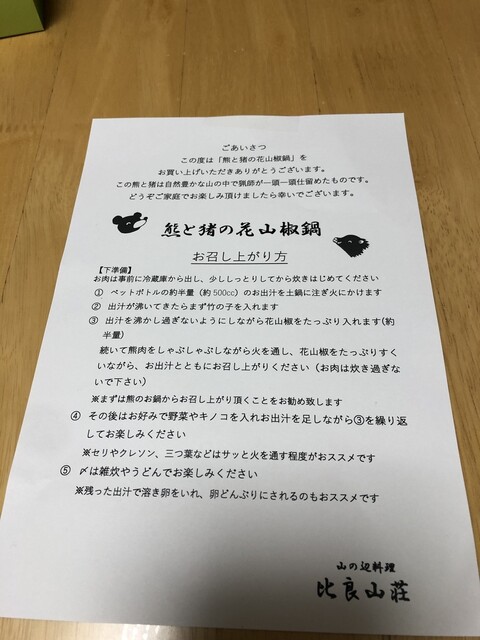 ごあいさつ
この度は「熊と猪の花山椒鍋」を
お買い上げいただきありがとうございます。
この熊と猪は自然豊かな山の中で猟師が一頭一頭仕留めたものです。
どうぞご家庭でお楽しみ頂けましたら幸いでございます。
熊と猪の花山椒鍋
お召し上がり方
【下準備】
お肉は事前に冷蔵庫から出し、少ししっとりしてから炊きはじめてください
① ペットボトルの約半量（約500cc）のお出汁を土鍋に注ぎ火にかけます
② 出汁が沸いてきたらまず竹の子を入れます
③ 出汁を沸かし過ぎないようにしながら花山椒をたっぷり入れます(約
半量)
続いて熊肉をしゃぶしゃぶしながら火を通し、花山椒をたっぷりすく
いながら、お出汁とともにお召し上がりください（お肉は炊き過ぎな
いで下さい）
※まずは熊のお鍋からお召し上がり頂くことをお勧め致します
④ その後はお好みで野菜やキノコを入れお出汁を足しながら③を繰り返
してお楽しみください
※セリやクレソン、三つ葉などはサッと火を通す程度がおススメです
⑤ 〆は雑炊やうどんでお楽しみください
※残った出汁で溶き卵をいれ、卵どんぶりにされるのもおススメです
山の辺料理
比良山荘